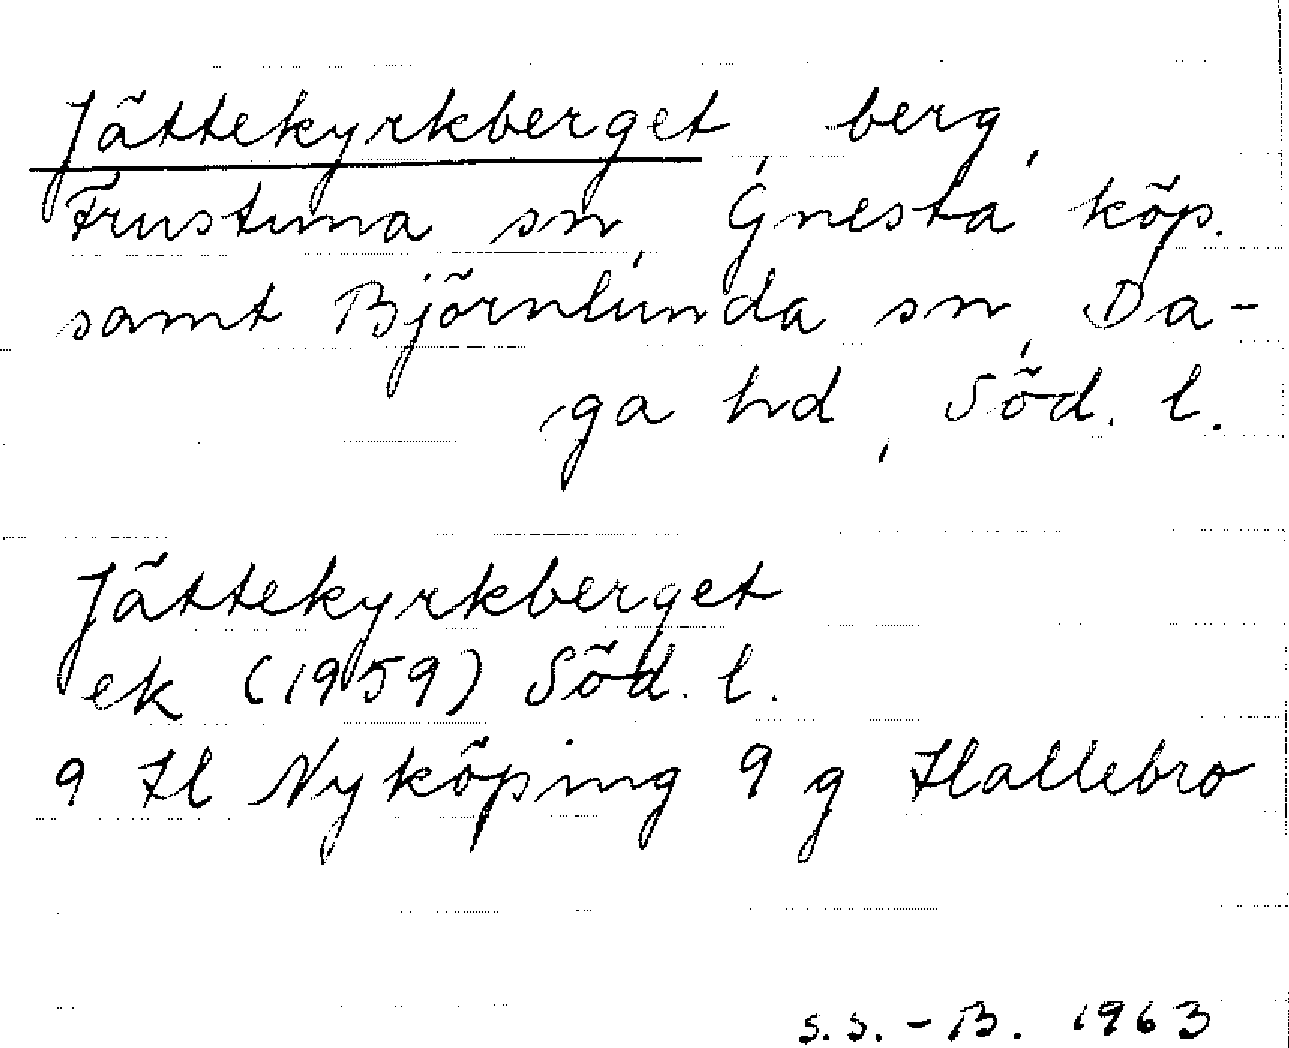 Jättekyrkberget, berg,
Frustuna sn, Gnesta köp.
samt Björnlunda sn, Da-
ga hd, Söd. l.
Jättekyrkberget
ek (1959) Söd. l.
9 H Nyköping 9 g Hallebro
S.S.-B. 1963